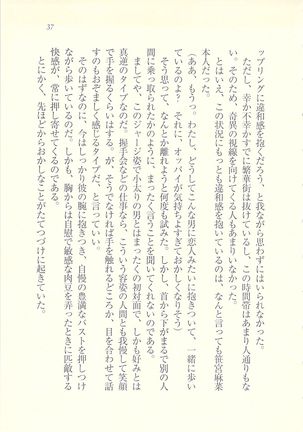 37
ップリングに違和感を抱くだろう、と我ながら思わずにはいられなかった。
ただし、幸か不幸かすでに繁華街は抜けているし、この時間帯はあまり人通りもな
い。そのため、奇異の視線を向けてくる人もあまりいなかった。
とはいえ、この状況にもっとも違和感を抱いているのは、なんと言っても笹宮麻菜
本人だった。
(ああ、もうっ。わたし、どうしてこんな男に恋人みたいに抱きついて、一緒に歩い
ているのよ？ それに、オッパイが気持ちよすぎておかしくなりそう)
そう思って、なんとか離れようと何度も試みた。しかし、首から下がまるで別の人
間に乗っ取られたかのように、まったく言うことを聞いてくれないのである。
ましてや、このジャージ姿で小太りの男とはまったくの初対面で、しかも好みとは
真逆のタイプなのだ。握手会などの仕事なら、こういう容姿の人間とも我慢して笑顔
で手を握るくらいはする。が、そうでなければ手を触れるどころか、目を合わせて話
すのもおぞましく感じるタイプだ、と言っていい。
そのはずなのに、今はしっかり彼の腕に抱きつき、自慢の豊満なバストを押しつけ
ながら歩いているのだ。しかも、胸からは自慰で敏感な肉豆を弄ったときに匹敵する
快感が、常に押し寄せてくるのである。
とにかく、先ほどからおかしなことがたてつづけに起きていた。